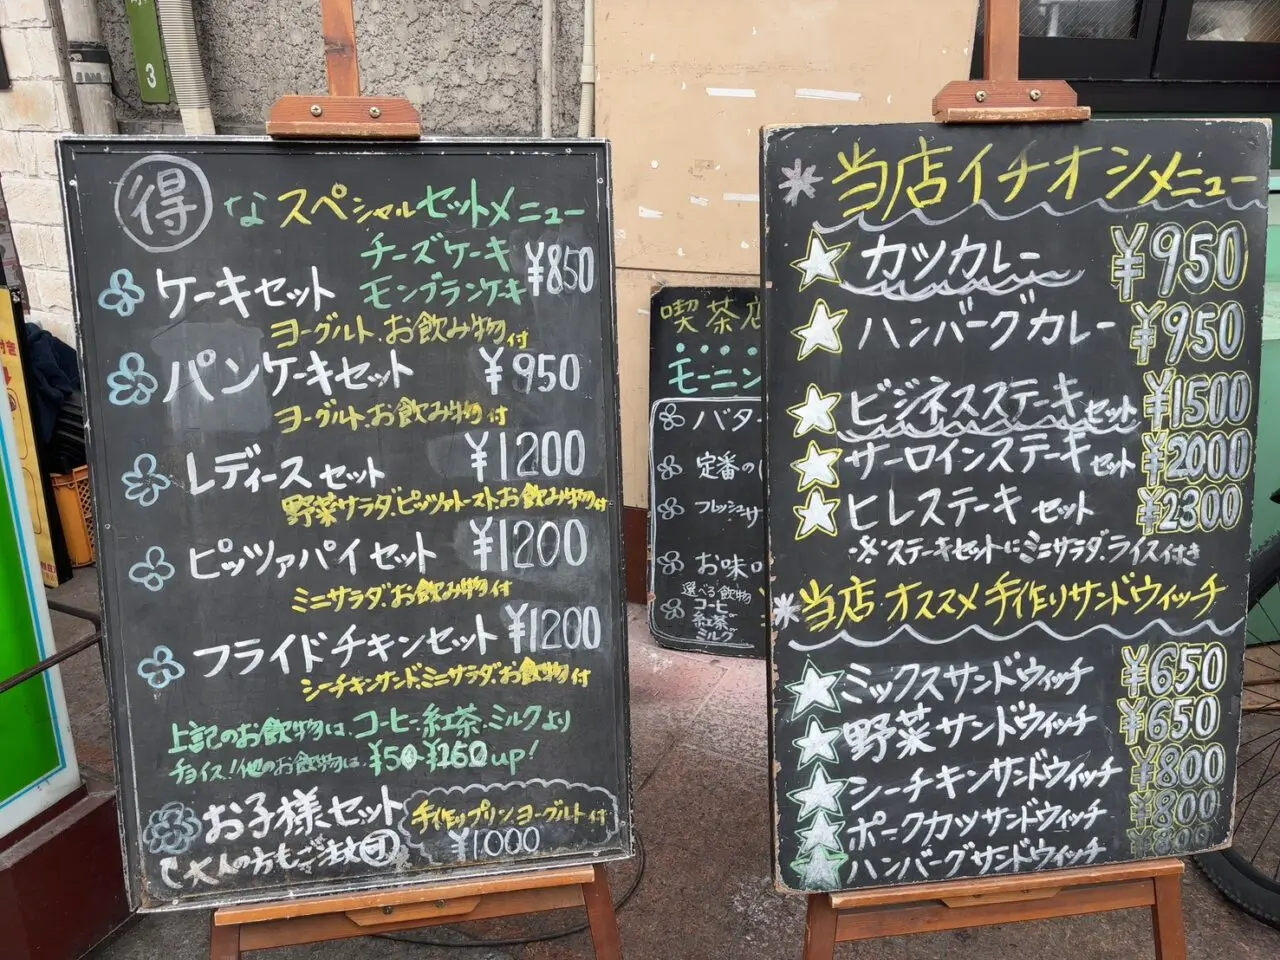 3
得 な スペシャル セットメニュー
チーズケーキ
ケーキセット モンブランケーキ ¥850
ヨーグルト、お飲み物付
パンケーキセット ¥950
ヨーグルト、お飲み物付
レディースセット ¥1200
野菜サラダ、ピッツァトースト、お飲み物付
ピッツァパイセット ¥1200
ミニサラダ、お飲み物付
フライドチキンセット ¥1200
シーチキンサンド、ミニサラダ、お飲物付
上記のお飲物は、コーヒー、紅茶、ミルクより
チョイス!他のお飲物は、¥50~¥150up!
お子様セット 手作りプリン ヨーグルト付
¥1.000
大人の方もご注文可
喫茶店
モーニン
バター
定番の
フレッシュサ
お味
選べる飲物
コーヒー
紅茶
ミルク
※当店イチオシメニュー
★カツカレー ¥950
★ハンバーグカレー ¥950
★ビジネスステーキセット ¥1500
★サーロインステーキセット ¥2000
★ヒレステーキセット ¥2300
※ステーキセットにミニサラダ、ライス付き
※当店・オススメ手作りサンドウィッチ
★ミックスサンドウィッチ ¥650
★野菜サンドウィッチ ¥650
★シーチキンサンドウィッチ ¥800
★ポークカツサンドウィッチ ¥800
★ハンバーグサンドウィッチ ¥800